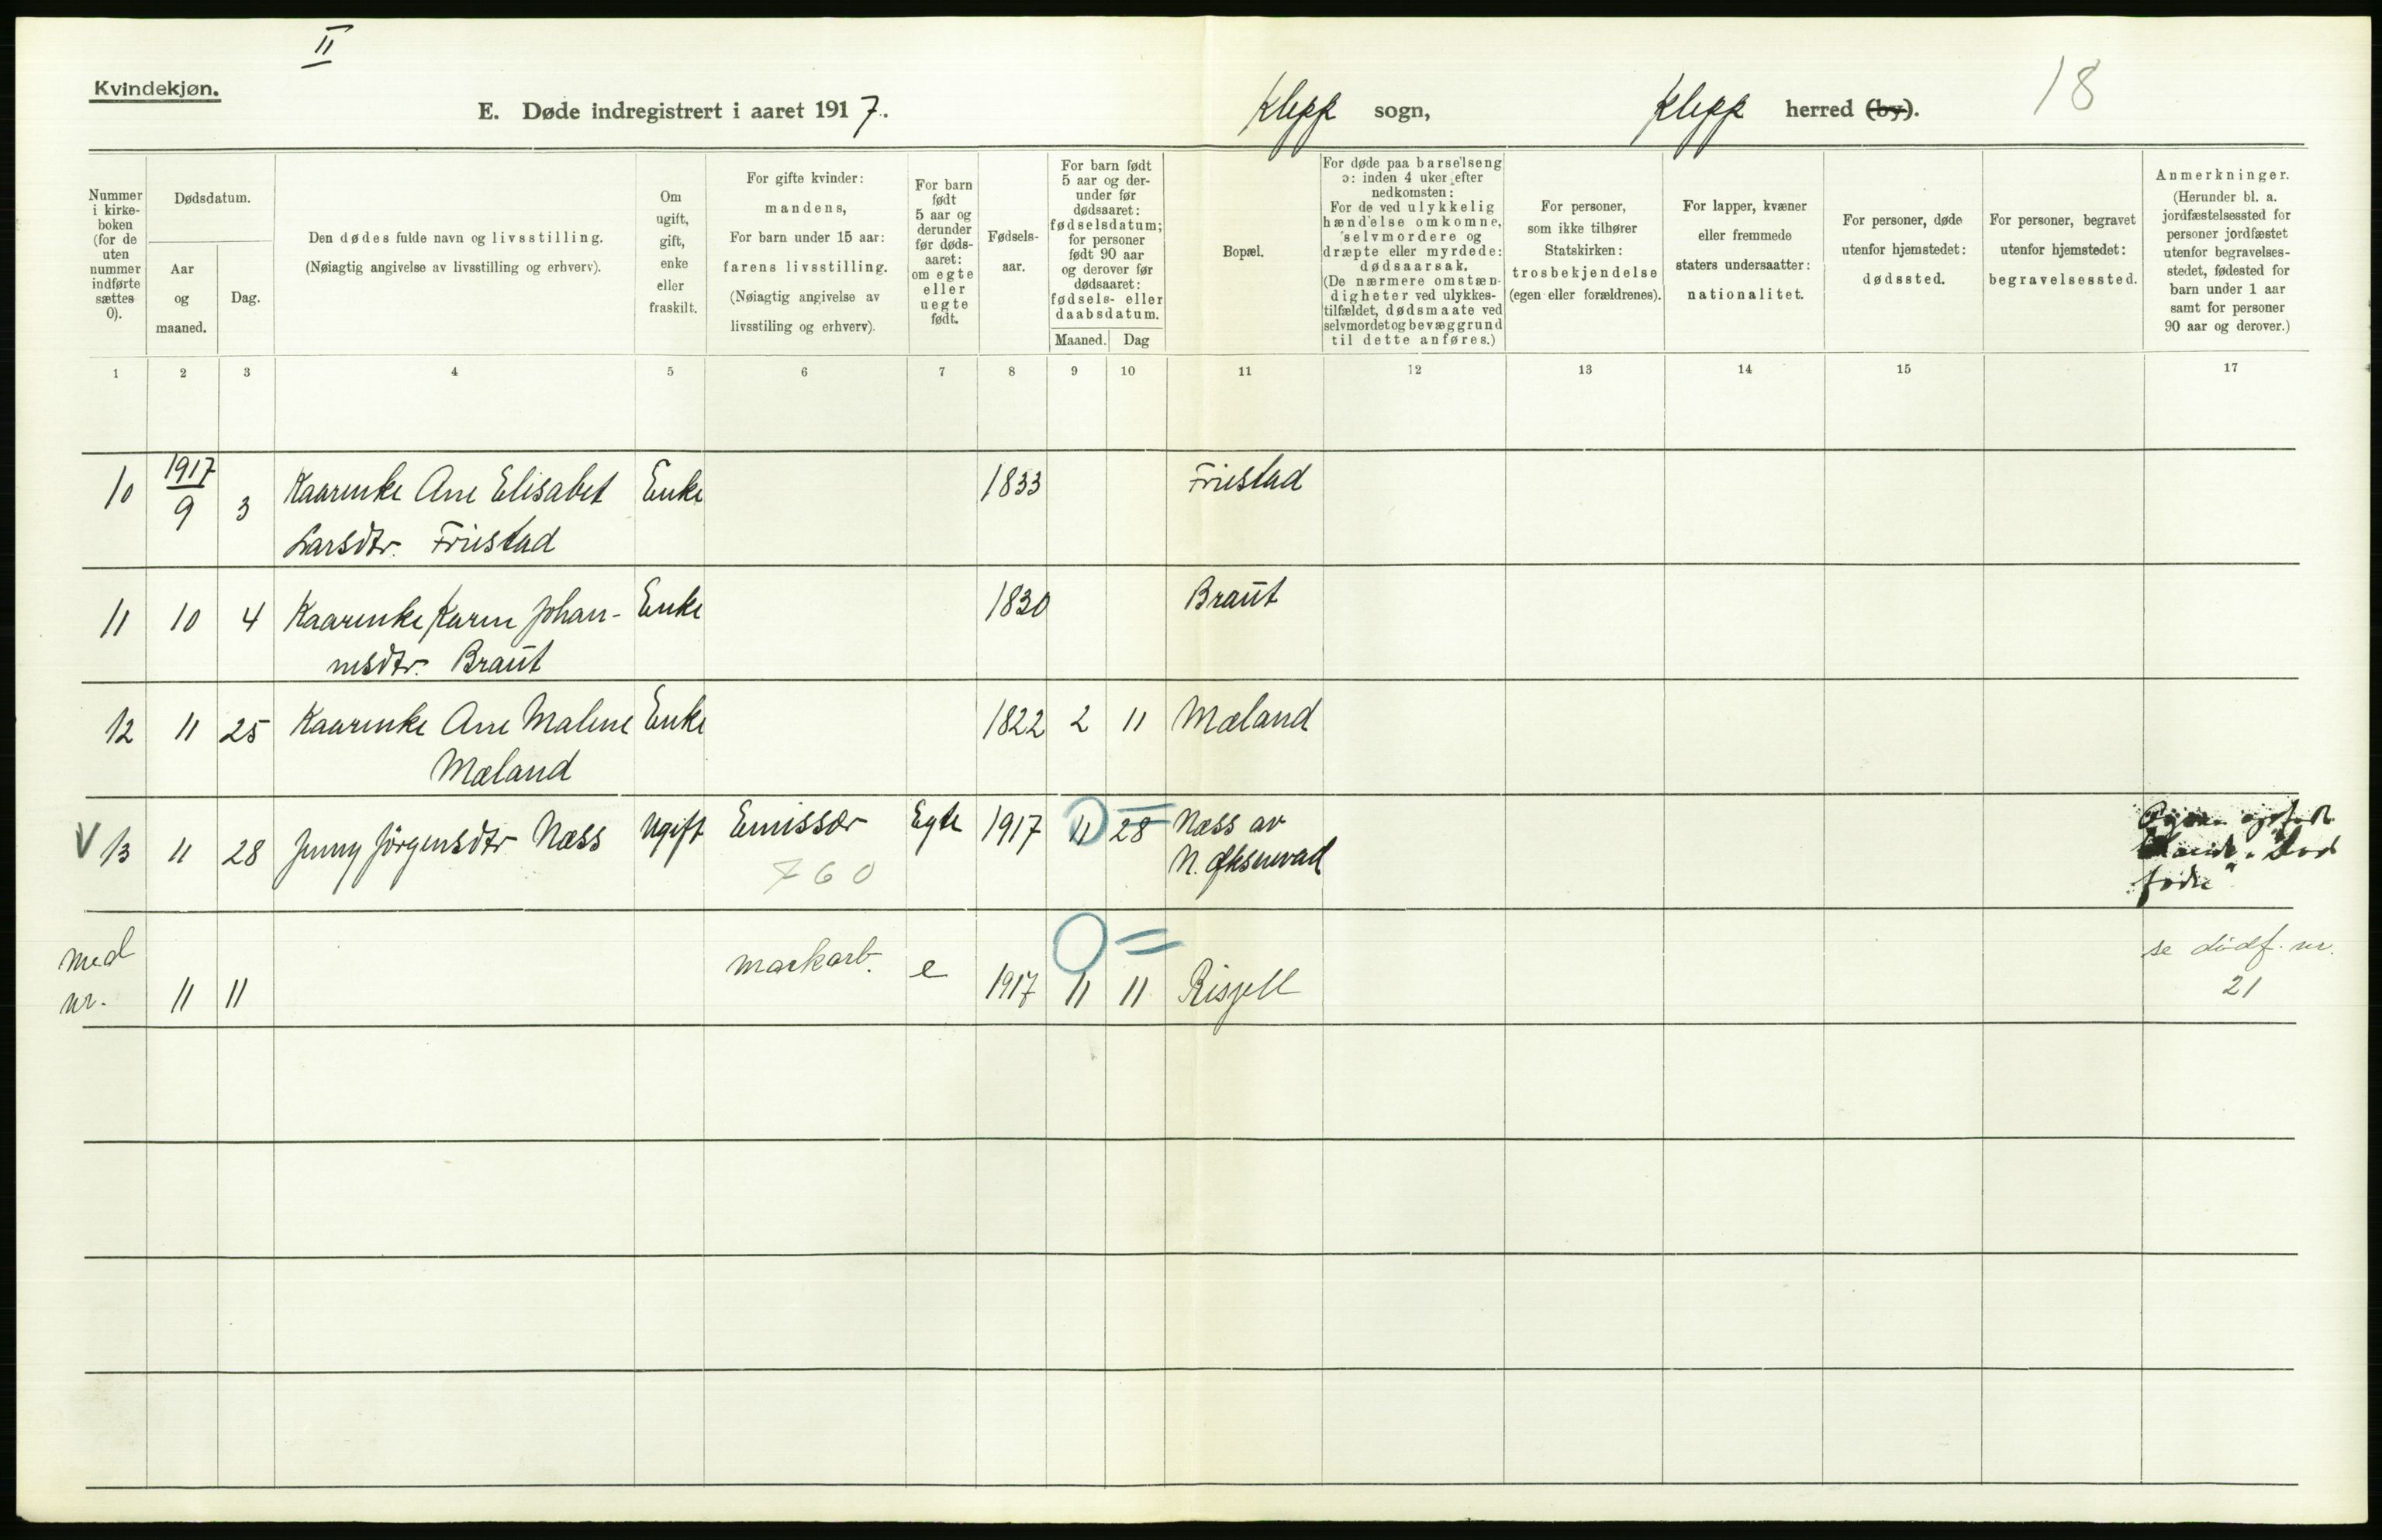 II
Kvindekjøn.
E. Døde indregistrert i aaret 1917.
Klepp sogn,
Klepp herred (by).
18
Nummer i kirke-boken (for de uten nummer indførte sættes 0).
Dødsdatum.
Aar og maaned.
Dag.
Den dødes fulde navn og livsstilling.
(Nøiagtig angivelse av livsstilling og erhverv).
Om ugift, gift, enke eller fraskilt.
For gifte kvinder:
mandens,
For barn under 15 aar:
farens livsstilling.
(Nøiagtig angivelse av
livsstiling og erhverv).
For barn født 5 aar og derunder før døds-aaret: om egte eller uegte født.
Fødsels-aar.
For barn født
5 aar og der-
under før
dødsaaret:
fødselsdatum;
for personer
født 90 aar
og derover før
dødsaaret:
fødsels- eller
daabsdatum.
Maaned. Dag
Bopæl.
For døde paa barselseng
ɔ: inden 4 uker efter
nedkomsten:
For de ved ulykkelig
hændelse omkomne,
selvmordere og
dræpte eller myrdede:
dødsaarsak.
(De nærmere omstæn-
digheter ved ulykkes-
tilfældet, dødsmaate ved
selvmordet og bevæggrund
til dette anføres.)
For personer,
som ikke tilhører
Statskirken:
trosbekjendelse
(egen eller forældrenes).
For lapper, kvæner
eller fremmede
staters undersaatter:
nationalitet.
For personer, døde
utenfor hjemstedet:
dødssted.
For personer, begravet
utenfor hjemstedet:
begravelsessted.
Anmerkninger.
(Herunder bl. a.
jordfæstelsessted for
personer jordfæstet
utenfor begravelses-
stedet, fødested for
barn under 1 aar
samt for personer
90 aar og derover.)
1 2 3 4 5 6 7 8 9 10 11 12 13 14 15 17
10 1917 9 3 Kaarenke Ane Elisabet Enke 1833 Friestad
Larsdtr. Friestad
11 10 4 Kaarenke Karen Johan- Enke 1830 Braut
nesdtr. Braut
12 11 25 Kaarenke Ane Malene Enke 1822 2 11 Mæland
Mæland
V 13 11 28 Jenny Jörgensdtr Næss Ugift Emissær Egte 1917 11 28 Næss av
760 N. Øksnevad
født"
med markarb. e se dødf. nr.
nr. 11 11 1917 11 11 21